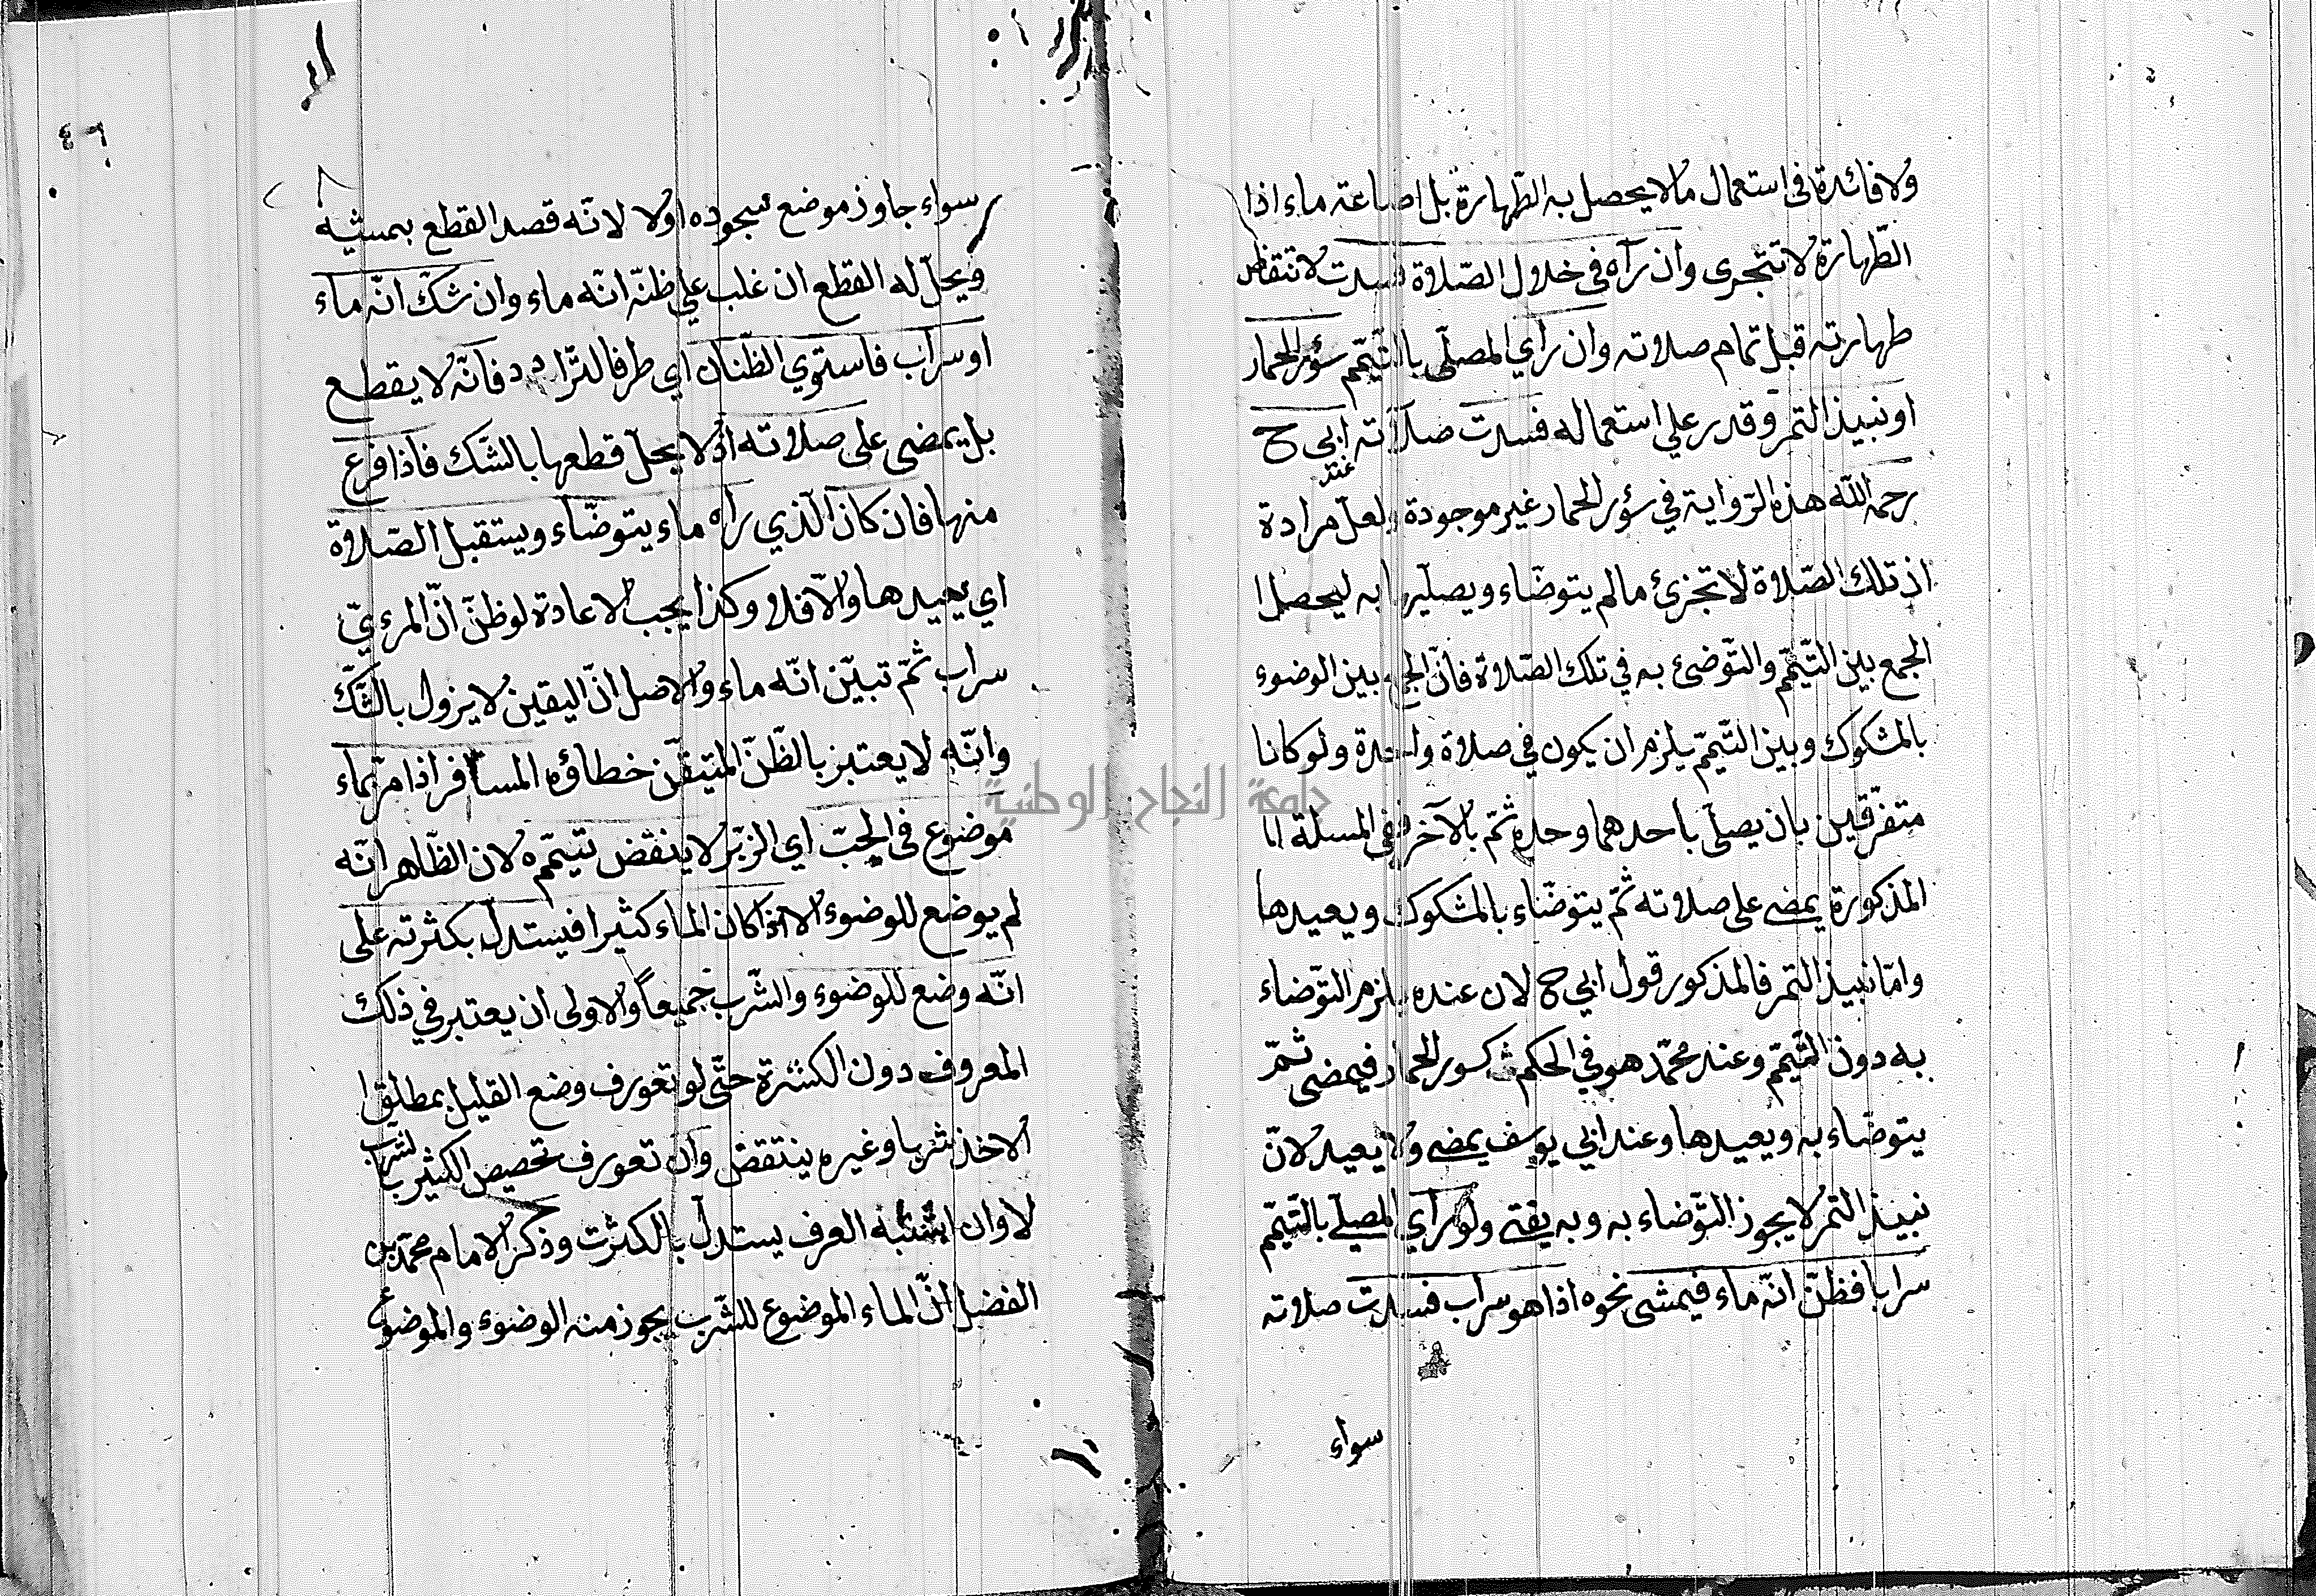 ولا فائدة في استعمال ما لا يحصل به الطّهارة بل اضاعة ماء اذا
الطّهارة لا تتجزى وان رآه في خلال الصّلاة فسدت لانتقاض
طهارته قبل تمام صلاته وان رأي المصلّى بالتّيمّم سؤر الحمار
او نبيذ التمر وقدر علي استعماله فسدت صلاته
عند
ابى ح
رحمه الله هذه الرّواية في سؤر الحمار غير موجودة ولعلّ مرادة
اذ تلك الصّلاة لا تجزئ ما لم يتوضّاء ويصلّيها به ليحصل ا
الجمع بين التّيمّم والتّوضئ به في تلك الصّلاة فانّ الجمع بين الوضوء
بالمشكوك وبين التّيمّم يلزم ان يكون في صلاة واحدة ولو كانا
متفرّقين بان يصلّى باحدهما وحده ثمّ بالآخر ففي المسئلة
المذكورة يمضى على صلاته ثمّ يتوضّاء بالمشكوك ويعيدها
وامّا نبيذ التمر فالمذكور قول ابي ح لان عنده يلزم التّوضاء
به دون التّيمّم وعند محمّد هو في الحكم كسور الحمار فيمضى ثمّ
يتوضّاء به ويعيدها وعند ابي يوسف يمضى ولا يعيد لانّ
نبيذ التمر لا يجوز التّوضاء به وبه يفتى ولو رآي المصلّى بالتّيمّم
سرابا فظنّ انّه ماء فيمشى نحوه اذا هو سراب فسدت صلاته
سواء
٤٦
سواء جاوز موضع سجوده اولا لانّه قصد القطع بمشيه
ويحلّ له القطع ان غلب علي ظنّه انّه ماء وان شكّ انّه ماء
او سراب فاستوي الظّنان اي طرفا التّرادد فانّه لا يقطع
بل يمضى على صلاته اذ لا يحلّ قطعها بالشّك فاذا فرغ
منها فان كان الّذي رآه ماء يتوضّاء ويستقبل الصّلاة
اي يعيدها والّا فلا وكذا يجب الاعادة لو ظنّ انّ المرءيّ
سراب ثمّ تبيّن انّه ماء والاصل انّ اليقين لا يزول بالشّكّ
وانّه لا يعتبر بالظّنّ المتيقّن خطاؤه المسافر اذا مرّ بماء
موضوع في الجبّ اي الزّير لا ينقض تيمّمه لان الظّاهر انّه
لم يوضع للوضوء الا اذا كان الماء كثيرا فيستدلّ بكثرته على
انّه وضع للوضوء والشّرب جميعاً والاولى ان يعتبر في ذلك
المعروف دون الكثرة حتّى لو تعورف وضع القليل بمطلق ا
الاخذ شربا وغيره ينتقض وان تعورف تخصيص الكثير بالشرب
لا وان اشتبه العرف يستدلّ بالكثرت وذكر الامام محمّد بن
الفضل انّ الماء الموضوع للشّرب يجوز منه الوضوء والموضوع
جامعة النجاح الوطنية